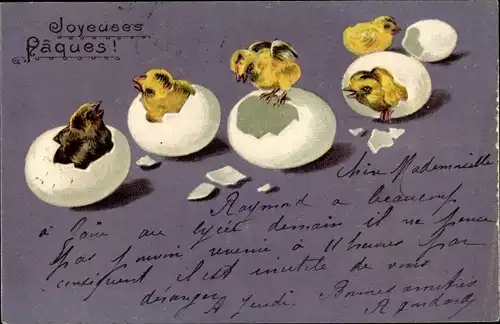 Joyeuses
Pâques!
Chère Mademoiselle
Raymond a beaucoup
à faire au lycée demain il ne pense
pas pouvoir revenir à 11 heures par
conséquent il est inutile de vous
déranger A Jeudi. Bonnes amitiés